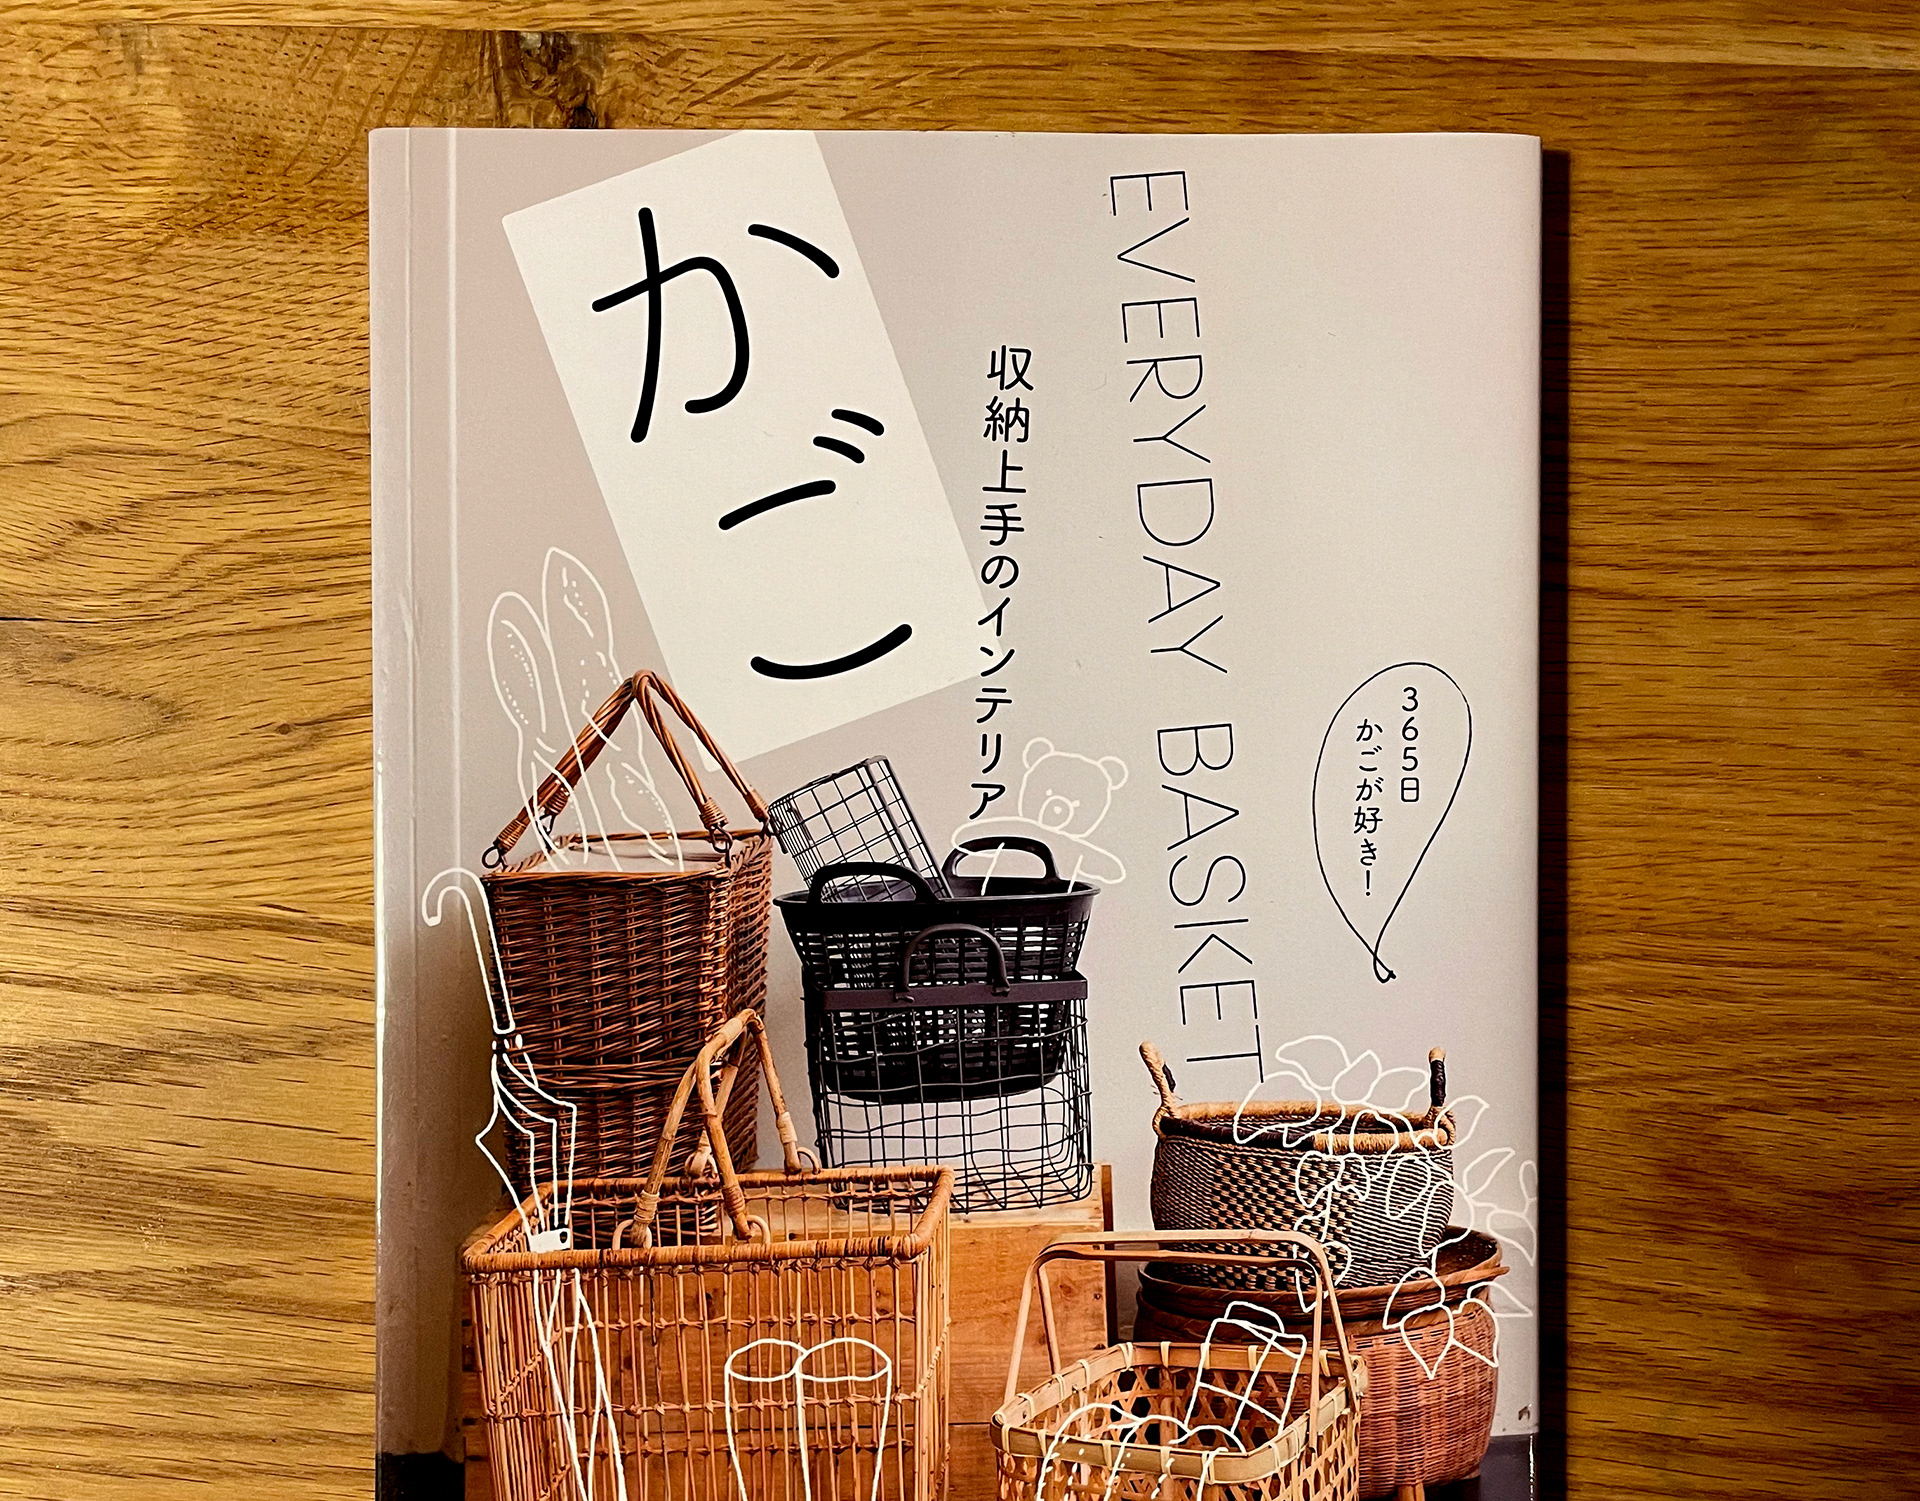 かご
収納上手のインテリア
EVERYDAY BASKET
365日
かごが好き!